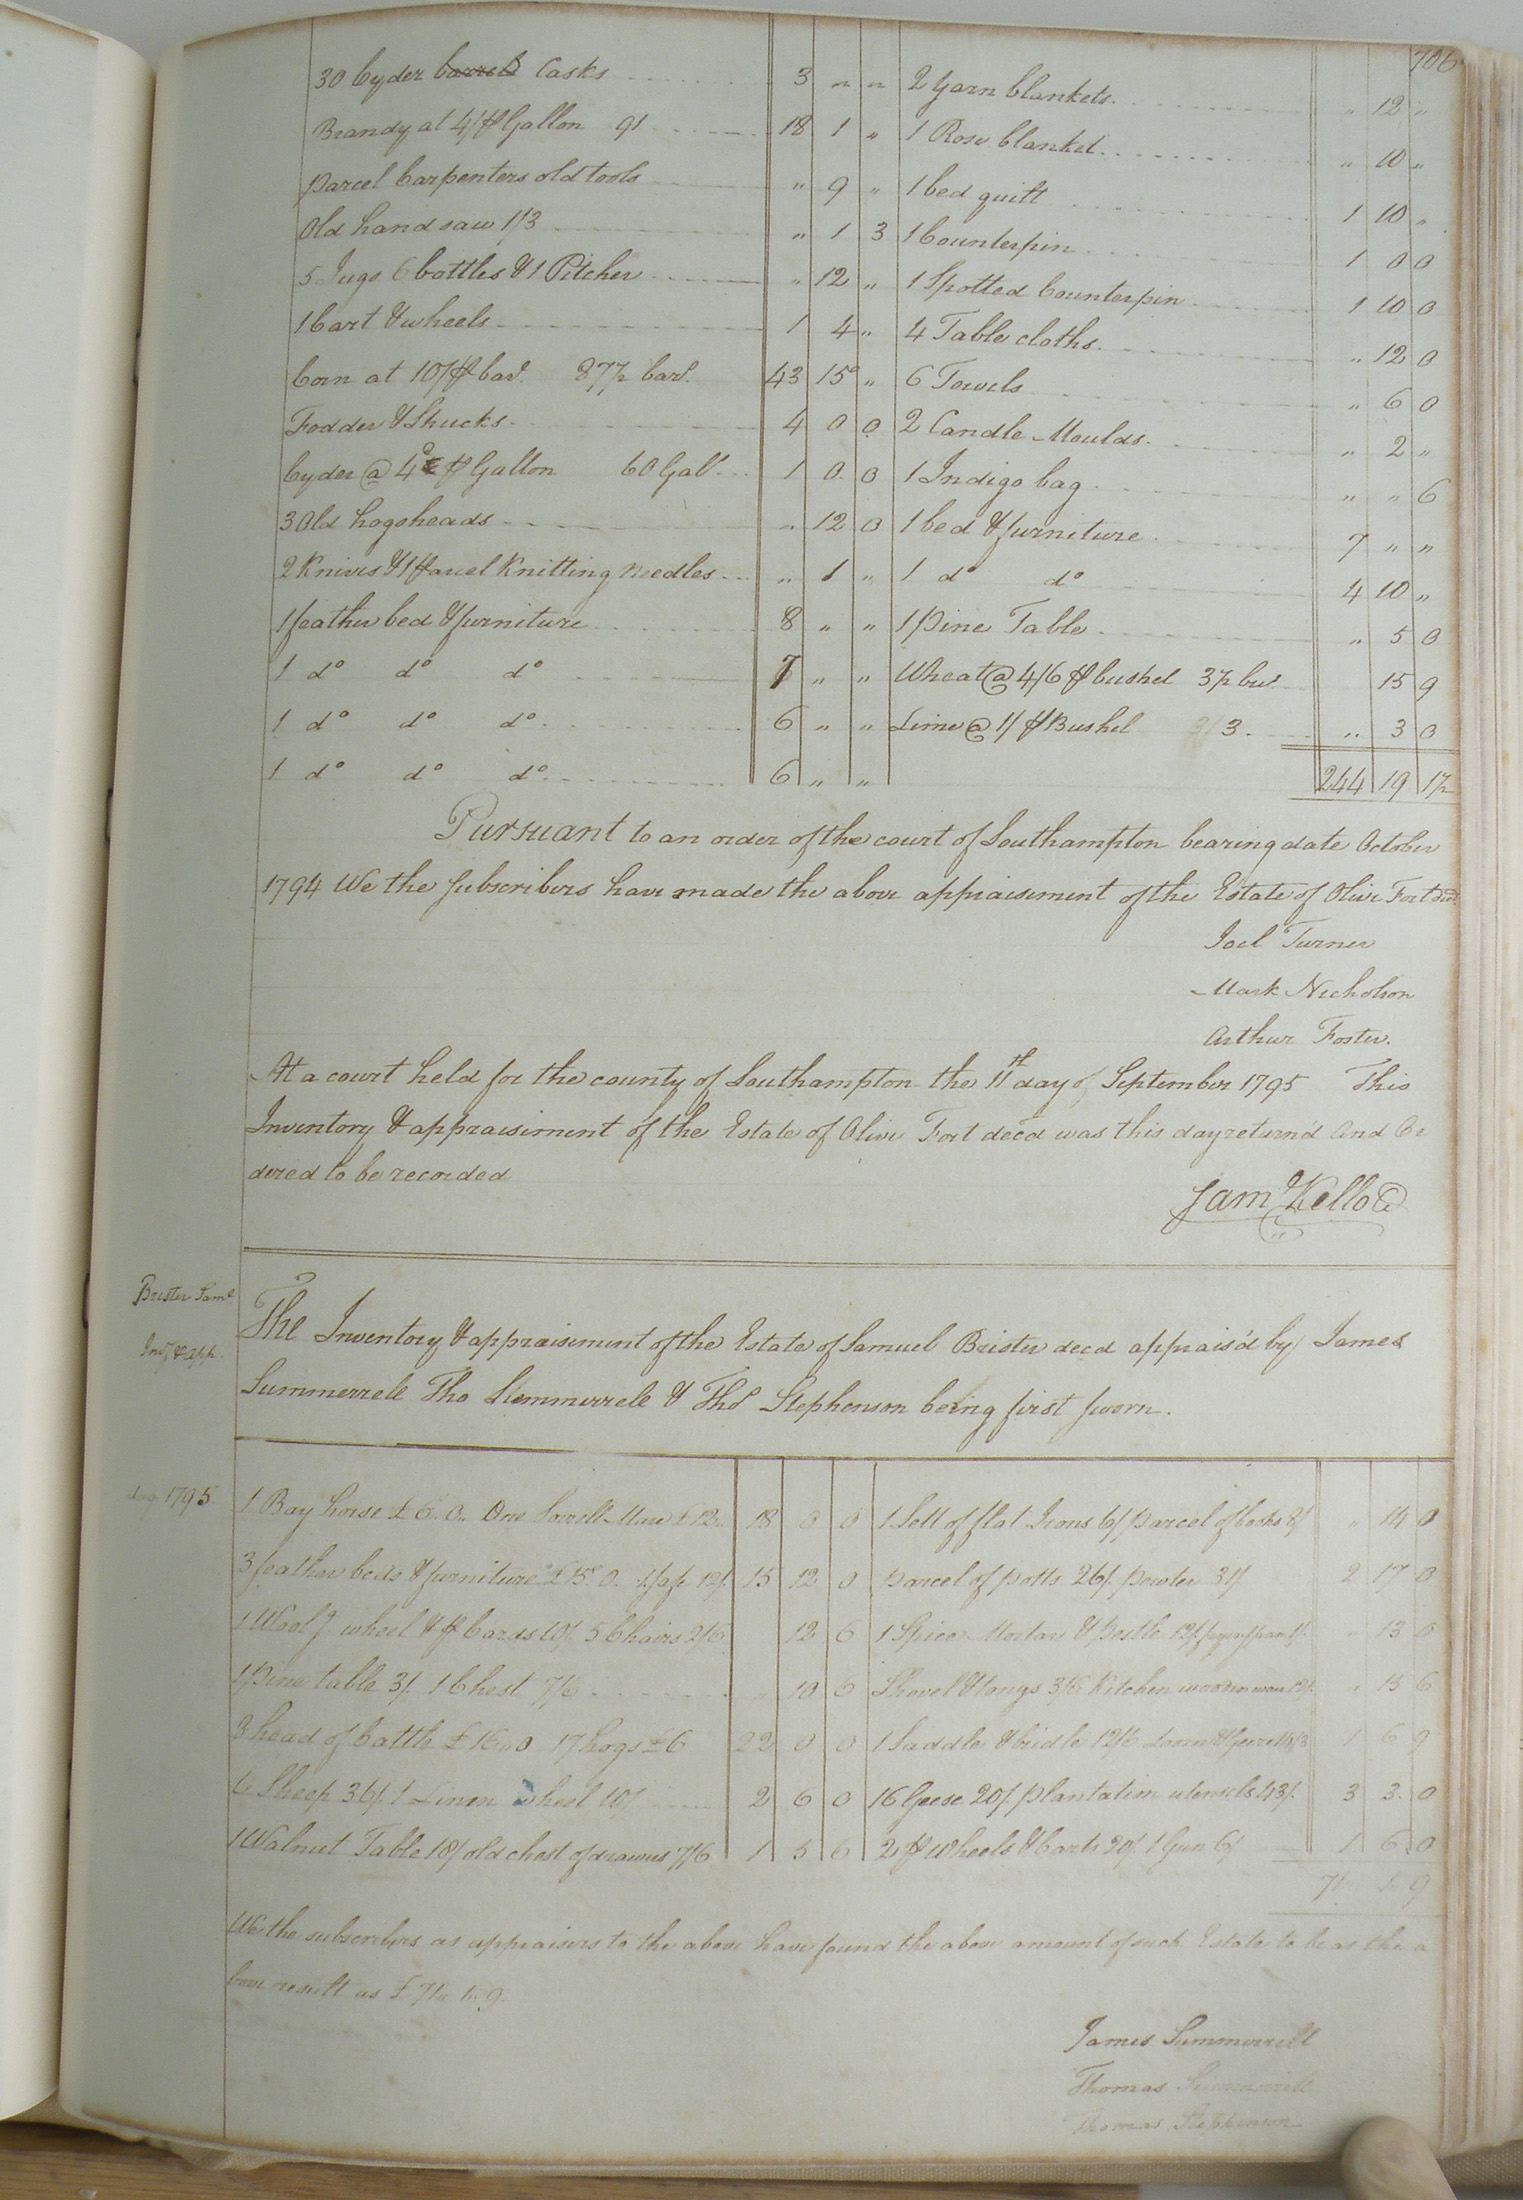 706
30 Cyder barrels Casks 3 " "
Brandy at 4/ ⅌ Gallon 91 18 1 "
parcel Carpenters old tools " 9 "
Old hand saw 1/3 " 1 3
5 Jugs 6 bottles & 1 Pitcher " 12 "
1 Cart & wheels 1 4 "
Corn at 10/ ⅌ barl. 87½ barl. 43 15 "
Fodder & Shucks 4 0 0
Cyder @ 4d ⅌ Gallon 60 Galls 1 0 0
3 Old hogsheads " 12 0
2 Knives & 1 parcel Knitting needles " 1 "
1 feather bed & furniture 8 " "
1 do do do 7 " "
1 do do do 6 " "
1 do do do 6 " "
2 yarn blankets " 12 "
1 Rose blanket " 10 "
1 bed quilt 1 10 "
1 Counterpin 1 0 0
1 Spotted Counterpin 1 10 0
4 Table cloths " 12 0
6 Towels " 6 0
2 Candle Moulds " 2 "
1 Indigo bag " " 6
1 bed & furniture 7 " "
1 do do 4 10 "
1 Pine Table " 5 0
Wheat @ 4/6 ⅌ bushel 3½ bus 15 9
Lime @ 1/ ⅌ Bushel 3 " 3 0
244 19 1½
Pursuant to an order of the court of Southampton bearing date October
1794 We the Subscribers have made the above appraisement of the Estate of Olive Fort decd
Joel Turner
Mark Nicholson
Arthur Foster.
At a court held for the county of Southampton the 11th day of September 1795 This
Inventory & appraisement of the Estate of Olive Fort decd was this day return'd And Or
dered to be recorded
Saml Kello C
Brister Saml
Invy & app.
The Inventory & appraisement of the Estate of Samuel Brister decd apprais'd by James
Summerrell Tho Summerrell & Thos Stephenson being first sworn.
Aug 1795
1 Bay horse £6. 0. One Sorrell Mare £12. 18 0 0
3 feather beds & furniture £15. 0. 12/ 15 12 0
1 Wool wheel & Cards 10/ 5 Chairs 2/6 12 6
1 Pine table 3/. 1 Chest 7/6 " 10 6
8 head of Cattle £16. 0 17 hogs £6 22 0 0
6 Sheep 36/. 1 Linen wheel 10/ 2 6 0
1 Walnut Table 18/ old chest of drawers 7/6 1 5 6
1 Sett of flat Irons 6/ parcel of books 8/ " 14 0
parcel of potts 26/. pewter 31/ 2 17 0
1 Spice Mortar & Pestle 12/. frying pan 1/. " 13 0
Shovel & tongs 3/6 Kitchen wooden ware 12/. " 15 6
1 Saddle & bridle 12/6 Loom & Geer 14/3 1 6 9
16 Geese 20/. plantation utensels 43/. 3 3 0
2 pr Wheels & Carts 20/. 1 Gun 6/ 1 6 0
71 1 9
We the subscribers as appraisers to the above have found the above amount of such Estate to be as the a
bove result as £71. 1. 9.
James Summerrell
Thomas Summerrell
Thomas Stephenson